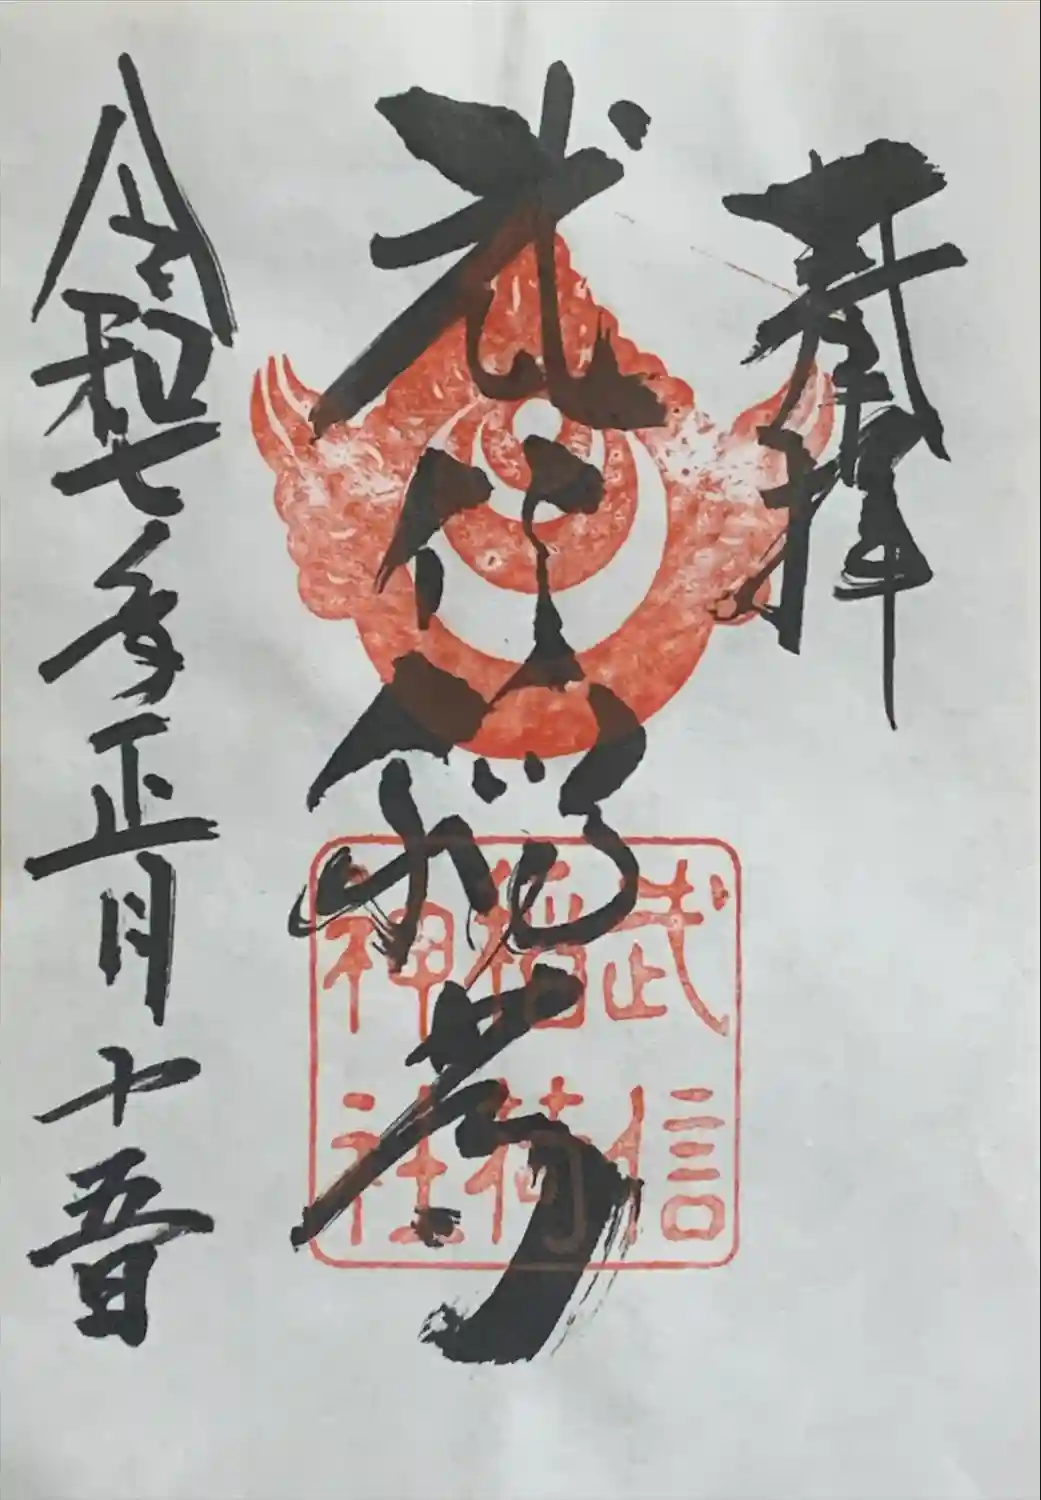 奉拝
武信稲荷
武信
稲荷
神社
令和七年正月十五日